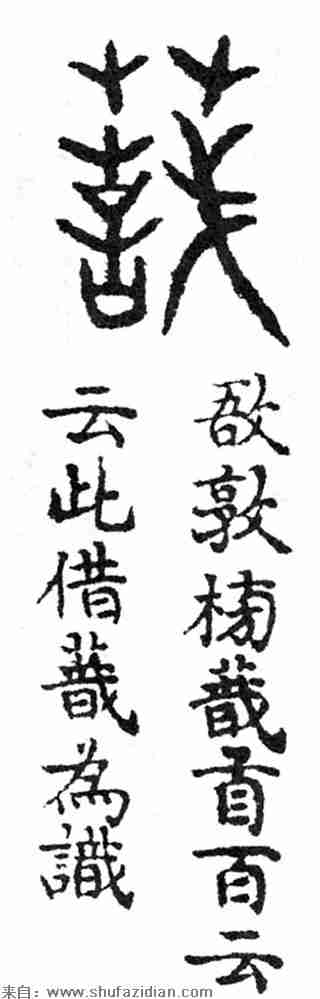 蕺
敔敦榜蕺首百云
云此借蕺為識
来自：www.shufazidian.com